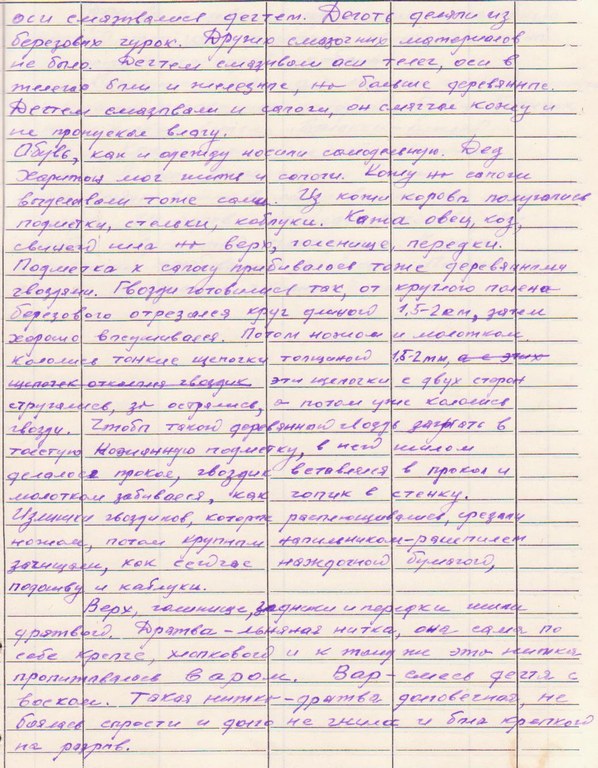 оси смазывались дегтем. Деготь делали из
березовых чурок. Других смазочных материалов
не было. Дегтем смазывали оси телег, оси в
телегах были и железные, но больше деревянные.
Дегтем смазывали и сапоги, он смягчал кожу и
не пропускал влагу.
Обувь, как и одежду носили самодельную. Дед
Харитон мог шить и сапоги. Кожу на сапоги
выделывали тоже сами. Из кожи коровы получались
подметки, стельки, каблуки. Кожа овец, коз,
свиней шла на верх, голенище, передки.
Подметка к сапогу прибивалась тоже деревянными
гвоздями. Гвозди готовились так, от круглого полена
березового отрезался круг длиной 1,5-2 см, затем
хорошо высушивался. Потом ножом и молотком
кололись тонкие щепочки толщиной 1,5-2 мм, а с этих
щепочек гвоздик эти щепочки с двух сторон
стругались, за острялись, а потом уже кололись
гвозди. Чтобы такой деревянный гвоздь загнать в
толстую кожанную подметку, в ней шилом
делался прокол, гвоздик вставлялся в прокол и
молотком забивался, как чопик в стенку.
Излишки гвоздиков, которые расплющивались, срезали
ножом, потом крупным напильником-рашпилем
зачищали, как сейчас наждачной бумагой,
подошву и каблуки.
Верх, голинище, задники и передки шили
дратвой. Дратва - льняная нитка, она сама по
себе крепче, хлопковой и к тому же эта нитка
пропитывалась варом. Вар - смесь дегтя с
воском. Такая нитка - дратва долговечная, не
боялась сырости и долго не гнила и была крепкой
на разрыв.